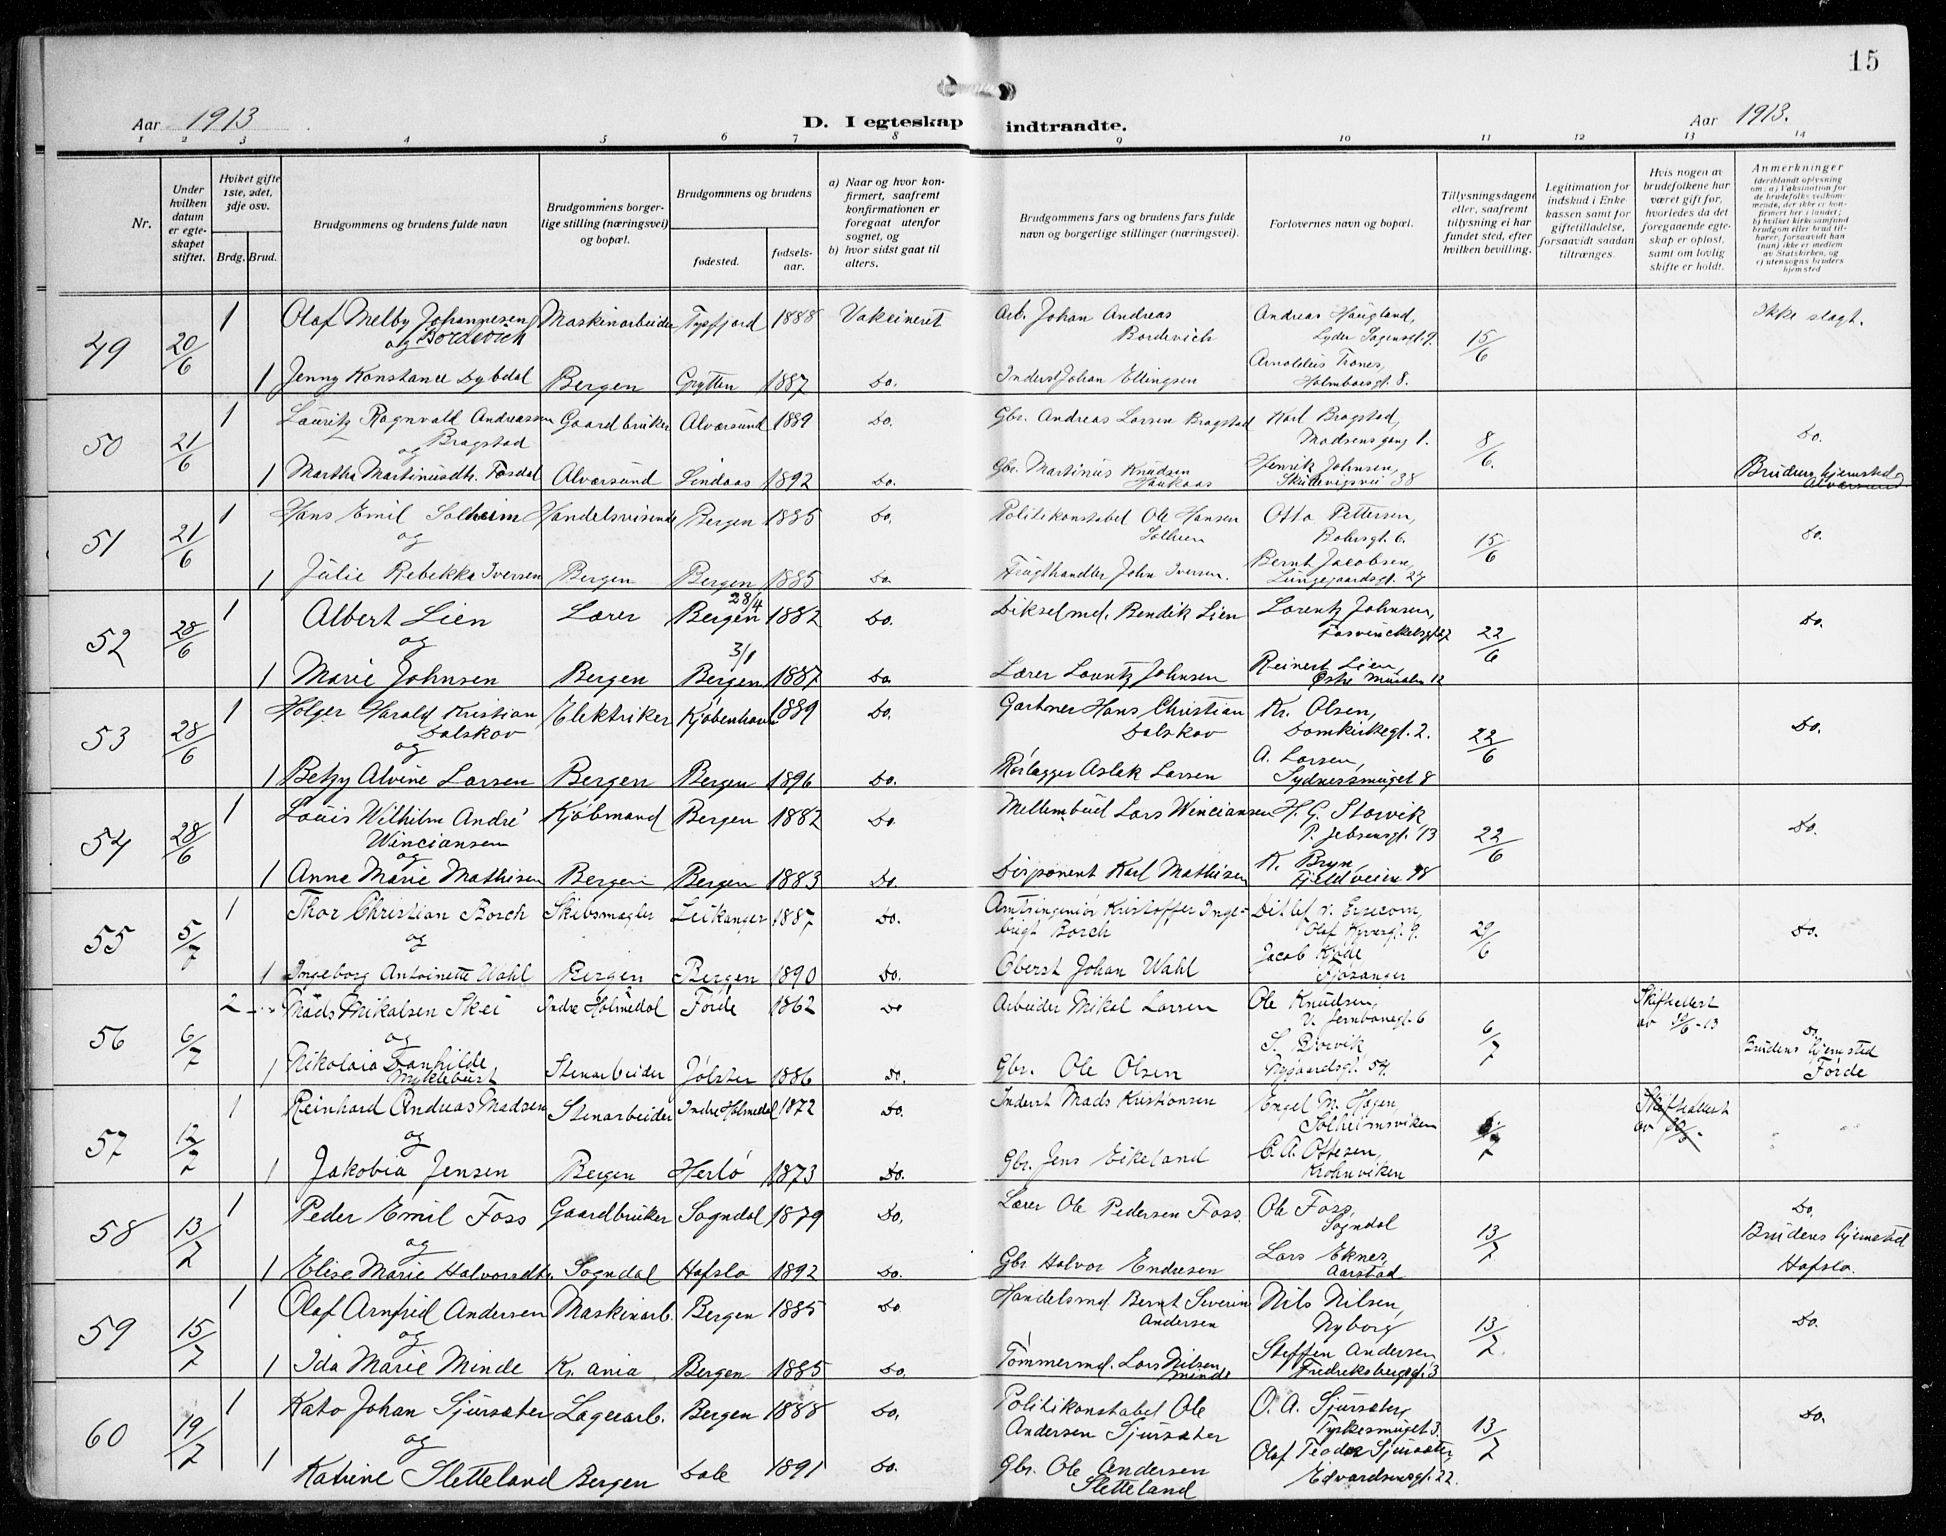 15
Aar 1913
D. I egteskap indtraadte.
Aar 1913.
1 2 3 4 5 6 7 8 9 10 11 12 13 14
Nr.
Under hvilken datum er egteskapet stiftet.
Hvilket gifte 1ste, 2det, 3dje osv.
Brdg. Brud.
Brudgommens og brudens fulde navn
Brudgommens borgerlige stilling (næringsvei) og bopæl.
Brudgommens og brudens
fødested.
fødselsaar.
a) Naar og hvor konfirmert, saafremt konfirmationen er foregaat utenfor sognet, og
b) hvor sidst gaat til alters.
Brudgommens fars og brudens fars fulde navn og borgerlige stillinger (næringsvei).
Forlovernes navn og bopæl.
Tillysningsdagene eller, saafremt tillysning ei har fundet sted, efter hvilken bevilling.
Legitimation for indskud i Enkekassen samt for giftetilladelse, forsaavidt saadan tiltrænges.
Hvis nogen av brudefolkene har været gift før, hvorledes da det foregaaende egteskap er opløst, samt om lovlig skifte er holdt.
Anmerkninger (deriblandt oplysning om: a) Vaksination for de brudefolks vedkommende, der ikke er konfirmert her i landet; b) hvilket kirkesamfund brudgom eller brud tilhører, forsaavidt han (hun) ikke er medlem av Statskirken, og c) utensogns bruders hjemsted
49 20/6 1 Olaf Melby Johannesen Bordevich Maskinarbeider Tysfjord 1888 Vakcineret Arb. Johan Andreas Bordevich Andreas Haugland, Lyder Sagensgt. 9. 15/6 Ikke slagt.
og
1 Jenny Konstance Dybdal Bergen Grytten 1887 Do. Inderst Johan Ellingsen Arnoldus Trones, Holmboesgt. 8.
50 21/6 1 Lauritz Ragnvald Andreassen Bragstad Gaardbruker Alværsund 1889 Do. Gbr. Andreas Larsen Bragstad Karl Bragstad, Madsensgang 1. 8/6. Do.
og
1 Martha Martinusdtr. Fosdal Alværsund Lindaas 1892 Do. Gbr. Martinus Knudsen Haukaas Henrik Johnsen, Skuteviksvei 38 Brudens hjemsted Alværsund.
51 21/6 1 Hans Emil Solheim Handelsreisende Bergen 1885 Do. Politikonstabel Ole Hansen Solheim Otto Pettersen, Bohrsgt. 6. 15/6 Do.
og
1 Julie Rebekka Iversen Bergen Bergen 1885 Do. Frugthandler John Iversen. Bernt Jacobsen, Lungegaardsgt. 27
52 28/6 1 Albert Lien Lærer Bergen 28/4 1882 Do. Dikselmd. Bendik Lien Lorentz Johnsen, Fosvinckelsgt. 27 22/6 Do.
og
1 Marie Johnsen Bergen 3/1 Bergen 1887 Do Lærer Lorentz Johnsen Reinert Lien, Østre Muralm. 12
53 28/6 1 Holger Harald Kristian Dalskov Elektriker Kjøbenhavn 1889 Do. Gartner Hans Christian Dalskov Kr. Olsen, Domkirkegt. 2. 22/6 Do.
og
1 Betzy Alvine Larsen Bergen Bergen 1896 Do. Rørlægger Aslak Larsen A. Larsen, Sydnessmuget 8
54 28/6 1 Louis Wilhilm André Winciansen Kjøbmand Bergen 1882 Do. Mellembud Lars Winciansen H. G. Storvik P. Jebsensgt. 13 22/6 Do.
og
1 Anna Marie Mathisen Bergen Bergen 1883 Do. Disponent Karl Mathisen K. Bryn, Fjeldveien 98
55 5/7 1 Thor Christian Borch Skibsmægler Leikanger 1887 Do. Amtsingeniør Kristoffer Ingebrigt Borch Ditlef v. Erpecom, Olaf Kyrresgt. 9. 29/6 Do.
og
1 Ingeborg Antoinette Wahl Bergen Bergen 1890 Do. Oberst Johan Wahl Jacob Kjøde Fjøsanger
56 6/7 2 Mads Mikalsen Skei Indre Holmedal Førde 1862 Do Arbeider Mikal Larsen Ole Knudsen, V. Jernbanegt. 6 6/7 Skifteattest av 30/6-13 Do.
og
1 Nikolaia Danhilde Myklebust Stenarbeider Jølster 1886 Do. Gbr. Ole Olsen S. Birvik Nygaardsgt. 54. Brudens hjemsted Førde
57 12/7 1 Reinhard Andreas Madsen Stenarbeider Indre Holmedal 1872 Do. Inderst Mads Kristiansen Engel M. Hagen, Solheimsviken 6/7 Skifteattest av
og
1 Jakobia Jensen Bergen Herlø 1873 Do. Gbr. Jens Eikeland C. A. Ottesen, Krohnviken
58 13/7 1 Peder Emil Foss Gaardbruker Sogndal 1879 Do. Lærer Ole Pedersen Foss. Ole Foss, Sogndal 13/7 Do.
og
1 Elise Marie Halvorsdtr. Sogndal Hafslo 1892 Do. Gbr. Halvor Endresen Lars Eknes Aarstad Brudens hjemsted Hafslo.
59 15/7 1 Olaf Arnfred Andersen Maskinarb. Bergen 1885 Do Handelsmd. Bernt Severin Andersen Nils Nilsen, Nyborg 13/7. Do.
og
1 Ida Marie Minde Kr.ania Bergen 1885 Do. Tømmermd. Lars Nilsen Minde Steffen Andersen Fredriksbergsgt. 3
60 19/7 1 Kato Johan Sjursæter Lagerarb. Bergen 1888 Do. Politikonstabel Ole Andersen Sjursæter O. A. Sjursæter, Tyskesmuget 3. 13/7 Do.
og
1 Katrine Sletteland Bergen Dale 1891 Do. Gbr. Ole Andersen Sletteland Olaf Teodor Sjursæter, Edvardsensgt. 22.